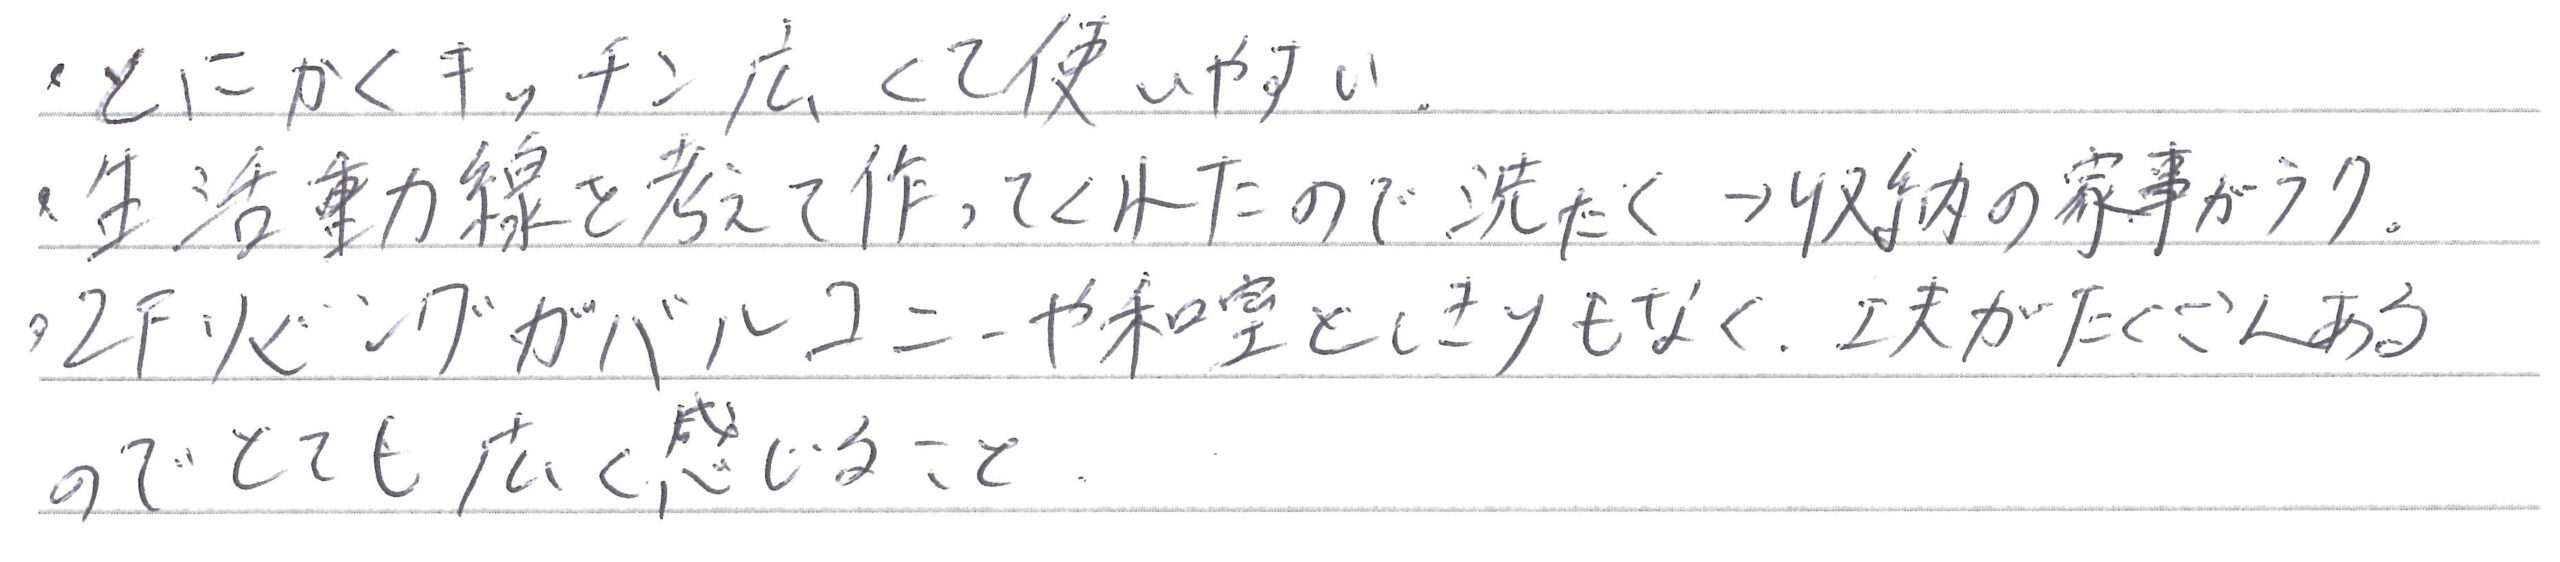 ・とにかくキッチン広くて使いやすい.
・生活動力線を考えて作ってくれたので洗たく→収納の家事がラク.
・2Fリビングがバルコニーや和室としきりもなく.工夫がたくさんある
のでとても広く感じること.